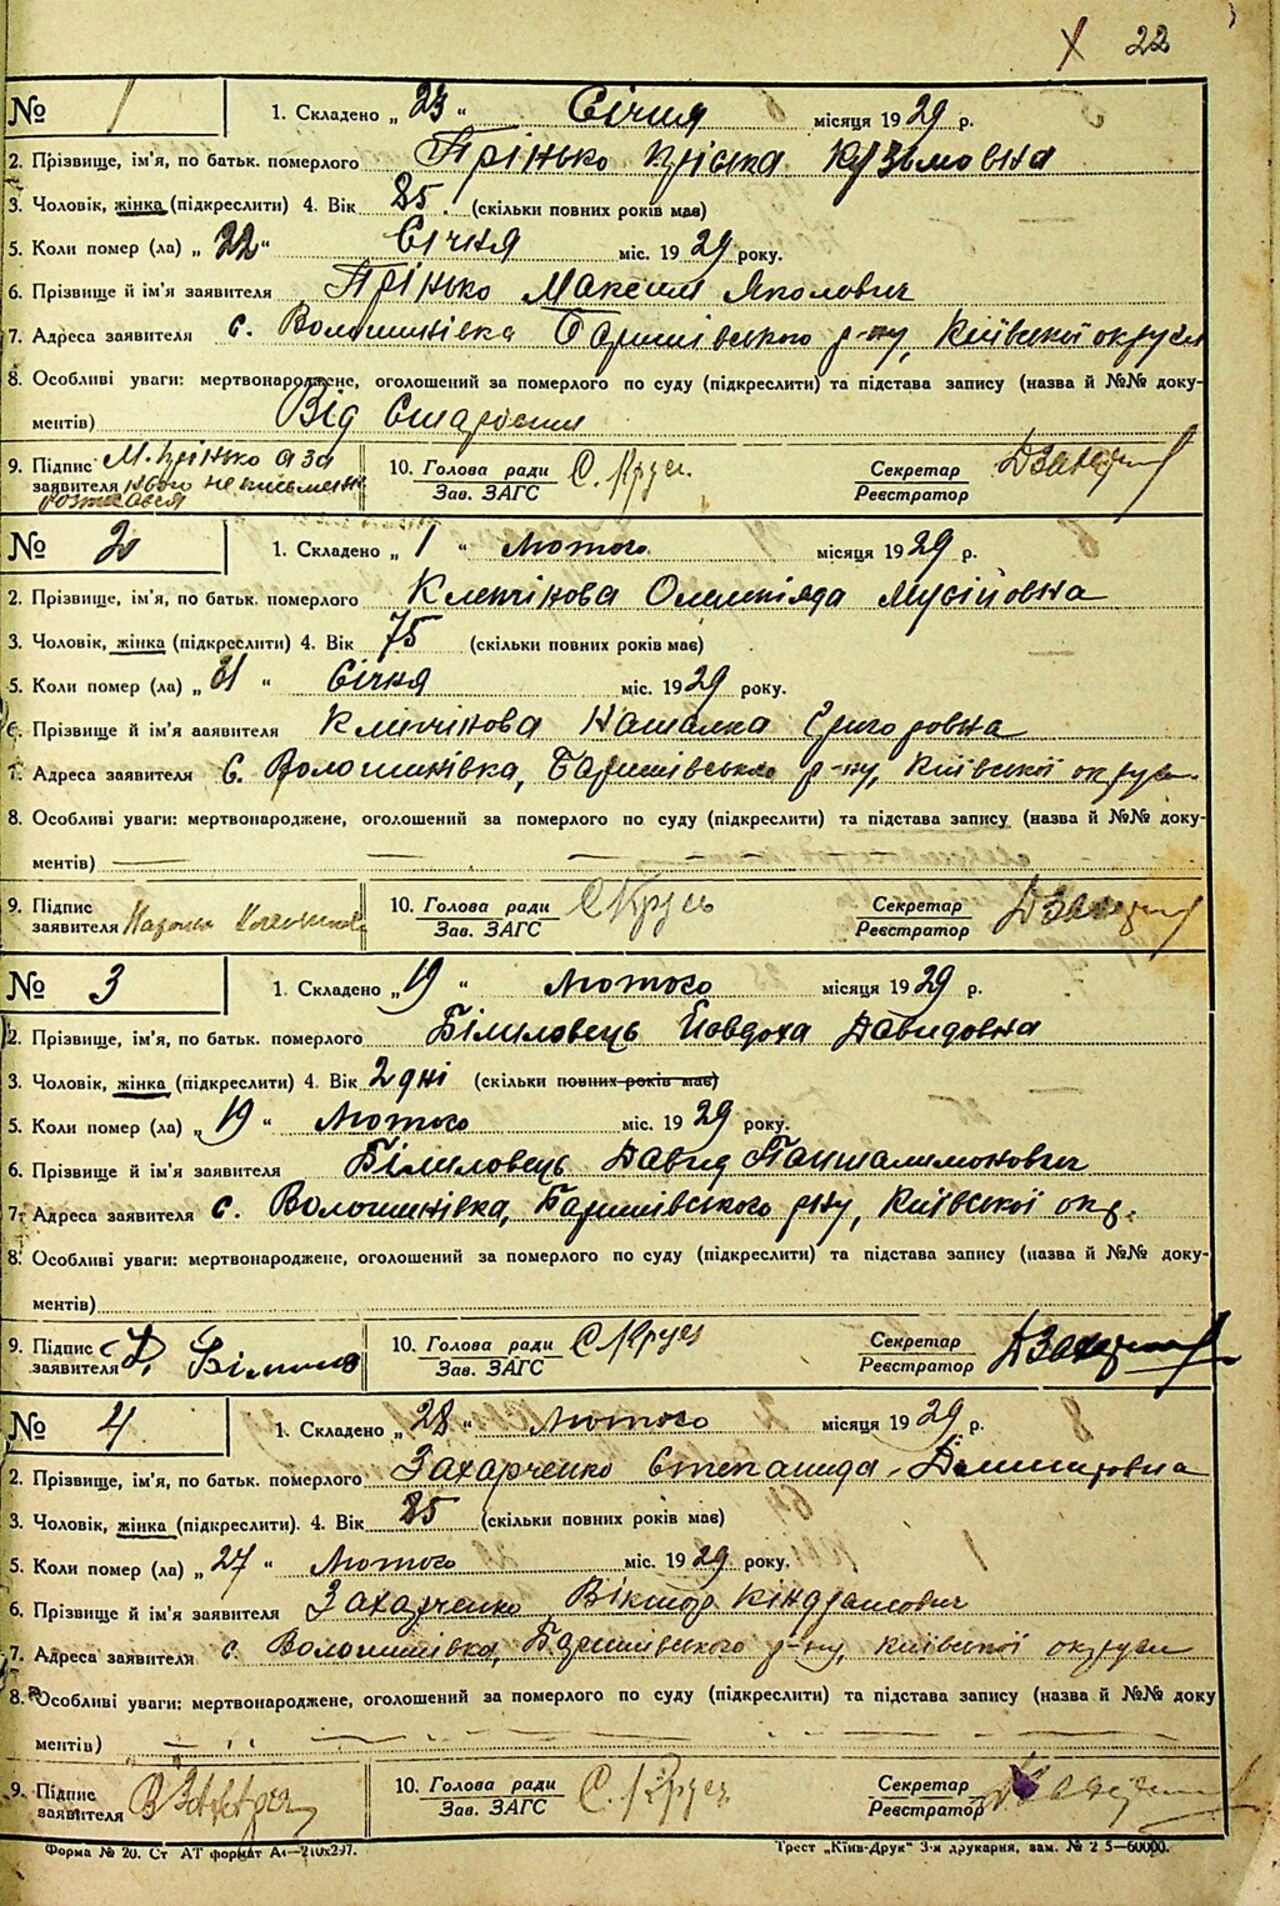 X 22
№ 1 1. Складено „ 23 “ Січня місяця 1929 р.
2. Прізвище, ім'я, по батьк. померлого Прінько Пріська Кузьмовна
3. Чоловік, жінка (підкреслити) 4. Вік 85. (скільки повних років має)
5. Коли помер (ла) „ 22 “ Січня міс. 1929 року.
6. Прізвище й ім'я заявителя Прінько Максим Яколович
7. Адреса заявителя с. Волошинівка Баришівського р-ну, Київської округи
8. Особливі уваги: мертвонароджене, оголошений за померлого по суду (підкреслити) та підстава запису (назва й №№ доку-
ментів) Від Старости
9. Підпис заявителя М. Прінько а за
10. Голова ради Зав. ЗАГС С. Крус Секретар Реєстратор
№ 2 1. Складено „ 1 “ Лютого місяця 1929 р.
2. Прізвище, ім'я, по батьк. померлого Клепчінова Олимпіяда Мусійовна
3. Чоловік, жінка (підкреслити) 4. Вік 75 (скільки повних років має)
5. Коли помер (ла) „ 31 “ Січня міс. 1929 року.
6. Прізвище й ім'я заявителя Наталка Григоровна
7. Адреса заявителя С. Волошинівка, Баришівського р-ну, Київської округи
8. Особливі уваги: мертвонароджене, оголошений за померлого по суду (підкреслити) та підстава запису (назва й №№ доку-
ментів)
9. Підпис заявителя
10. Голова ради Зав. ЗАГС С Крусь Секретар Реєстратор
№ 3 1. Складено „ 19 “ Лютого місяця 1929 р.
2. Прізвище, ім'я, по батьк. померлого Біliловець Йовдоха Давидовна
3. Чоловік, жінка (підкреслити) 4. Вік 2 дні (скільки повних років має)
5. Коли помер (ла) „ 19 “ Лютого міс. 1929 року.
6. Прізвище й ім'я заявителя Біliловець Давид Панталимонович
7. Адреса заявителя с. Волошинівка, Баришівського рну, Київської окр.
8. Особливі уваги: мертвонароджене, оголошений за померлого по суду (підкреслити) та підстава запису (назва й №№ доку-
ментів)
9. Підпис заявителя Д.
10. Голова ради Зав. ЗАГС С. Крус Секретар Реєстратор
№ 4 1. Складено „ 28 “ Лютого місяця 1929 р.
2. Прізвище, ім'я, по батьк. померлого Захарченко Степанида Домитровна
3. Чоловік, жінка (підкреслити). 4. Вік 85 (скільки повних років має)
5. Коли помер (ла) „ 27 “ Лютого міс. 1929 року.
6. Прізвище й ім'я заявителя Захарченко Віктор Кіндратович
7. Адреса заявителя с. Волошинівка, Баришівського р-ну, Київської округи
8. Особливі уваги: мертвонароджене, оголошений за померлого по суду (підкреслити) та підстава запису (назва й №№ доку
ментів)
9. Підпис заявителя
10. Голова ради Зав. ЗАГС С. Крус Секретар Реєстратор
Форма № 20. Ст АТ формат А4—210х297. Трест „Київ-Друк“ 3-я друкарня, зам. № 2 5—60000.